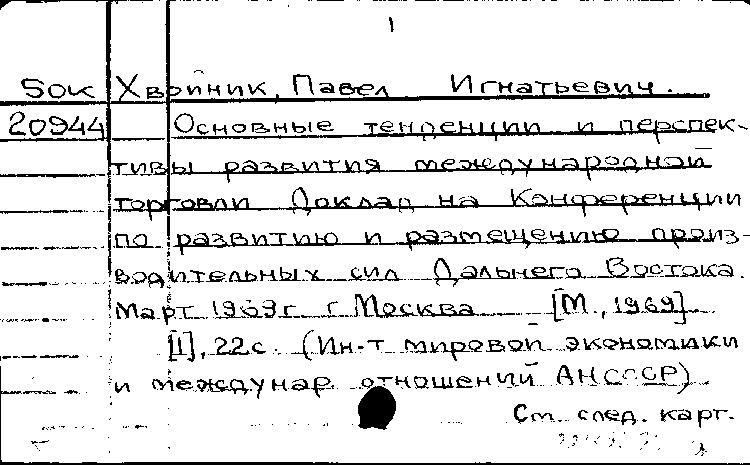 1
Sок Хвойник, Павел Игнатьевич.
20944 Основные тенденции и перспек-
тивы развития международной
торговли Доклад на Конференции
по развитию и размещению произ-
водительных сил Дальнего Востока.
Март 1969г. г Москва [М., 1969].
[1], 22с. (Ин-т мировой экономики
и междунар. отношений АН СССР)
См. след. карт.